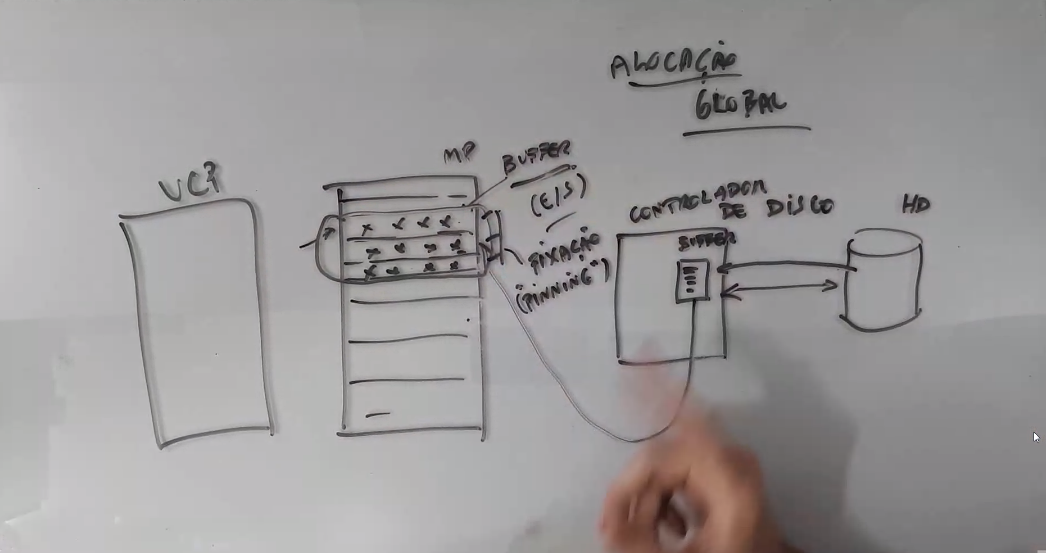 ALOCAÇÃO
GLOBAL
MP
BUFFER
(E/S)
FIXAÇÃO
("PINNING")
CONTROLADOR
DE DISCO
BUFFER
HD